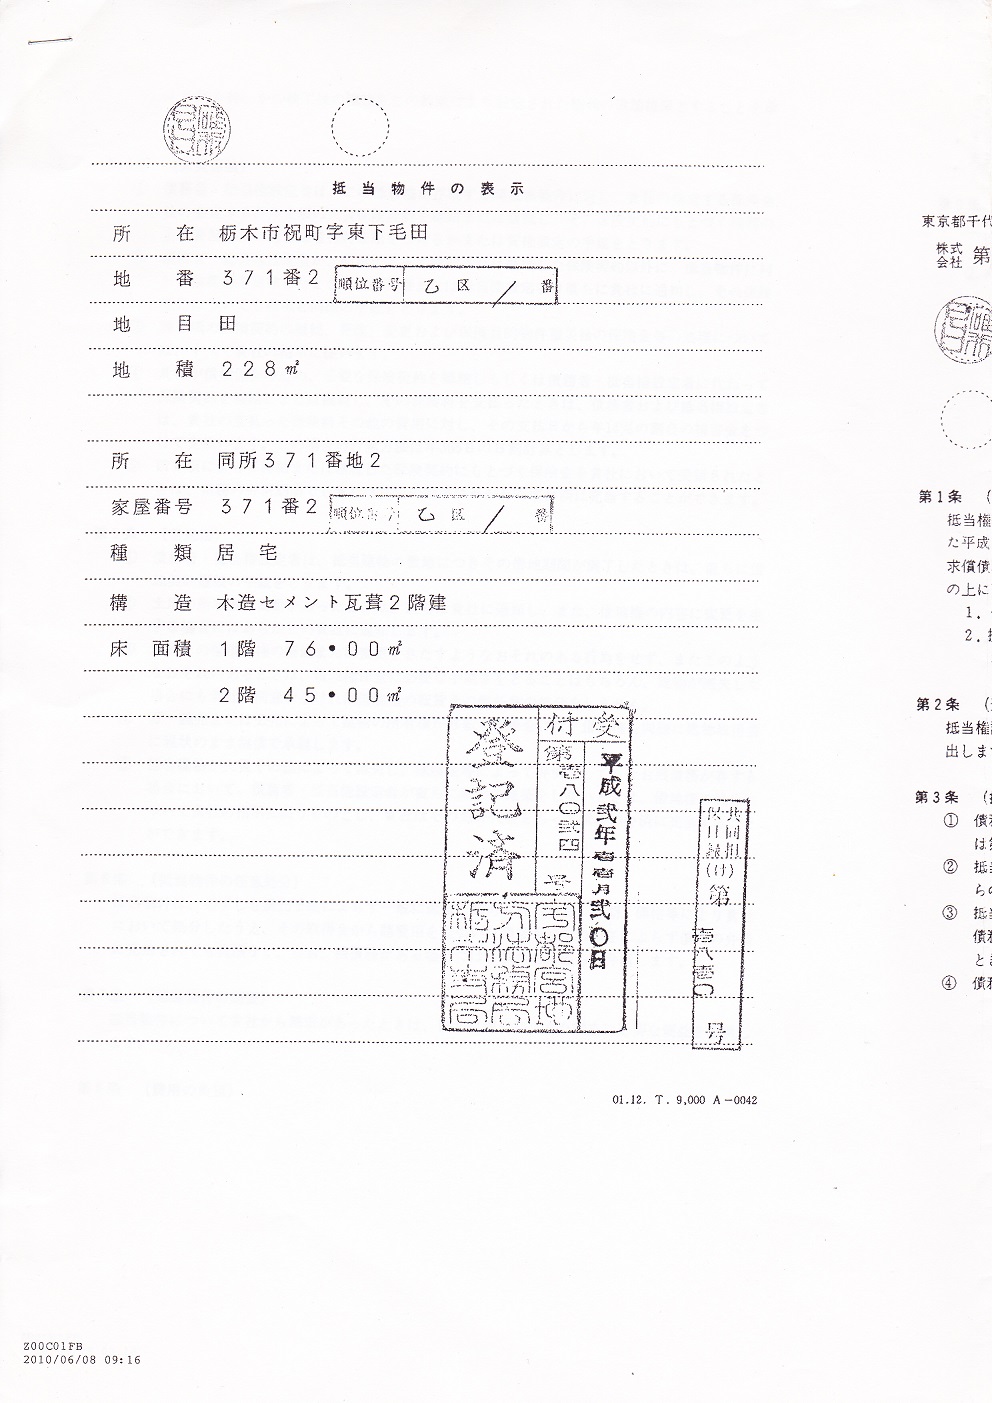 抵当物件の表示
所在 栃木市祝町字東下毛田
地番 371番2 順位番号 乙区 / 番
地目 田
地積 228㎡
所在 同所371番地2
家屋番号 371番2 順位番号 乙区 / 番
種類 居宅
構造 木造セメント瓦葺2階建
床面積 1階 76・00㎡
2階 45・00㎡
受付
平成弐年壱壱月弐〇日
第壱八〇弐四号
登記済
宇都宮地
方法務局
栃木支局
共同担
保目録(け)第
号
01.12. T. 9,000 A-0042
東京都千代
株式会社 第
第1条 (
抵当権
た平成
求償債
の上に
1.
2.
第2条 (
抵当権
出しま
第3条 (
① 債務
は
② 抵当
らの
③ 抵当
債務
とき
④ 債務
Z00C01FB
2010/06/08 09:16